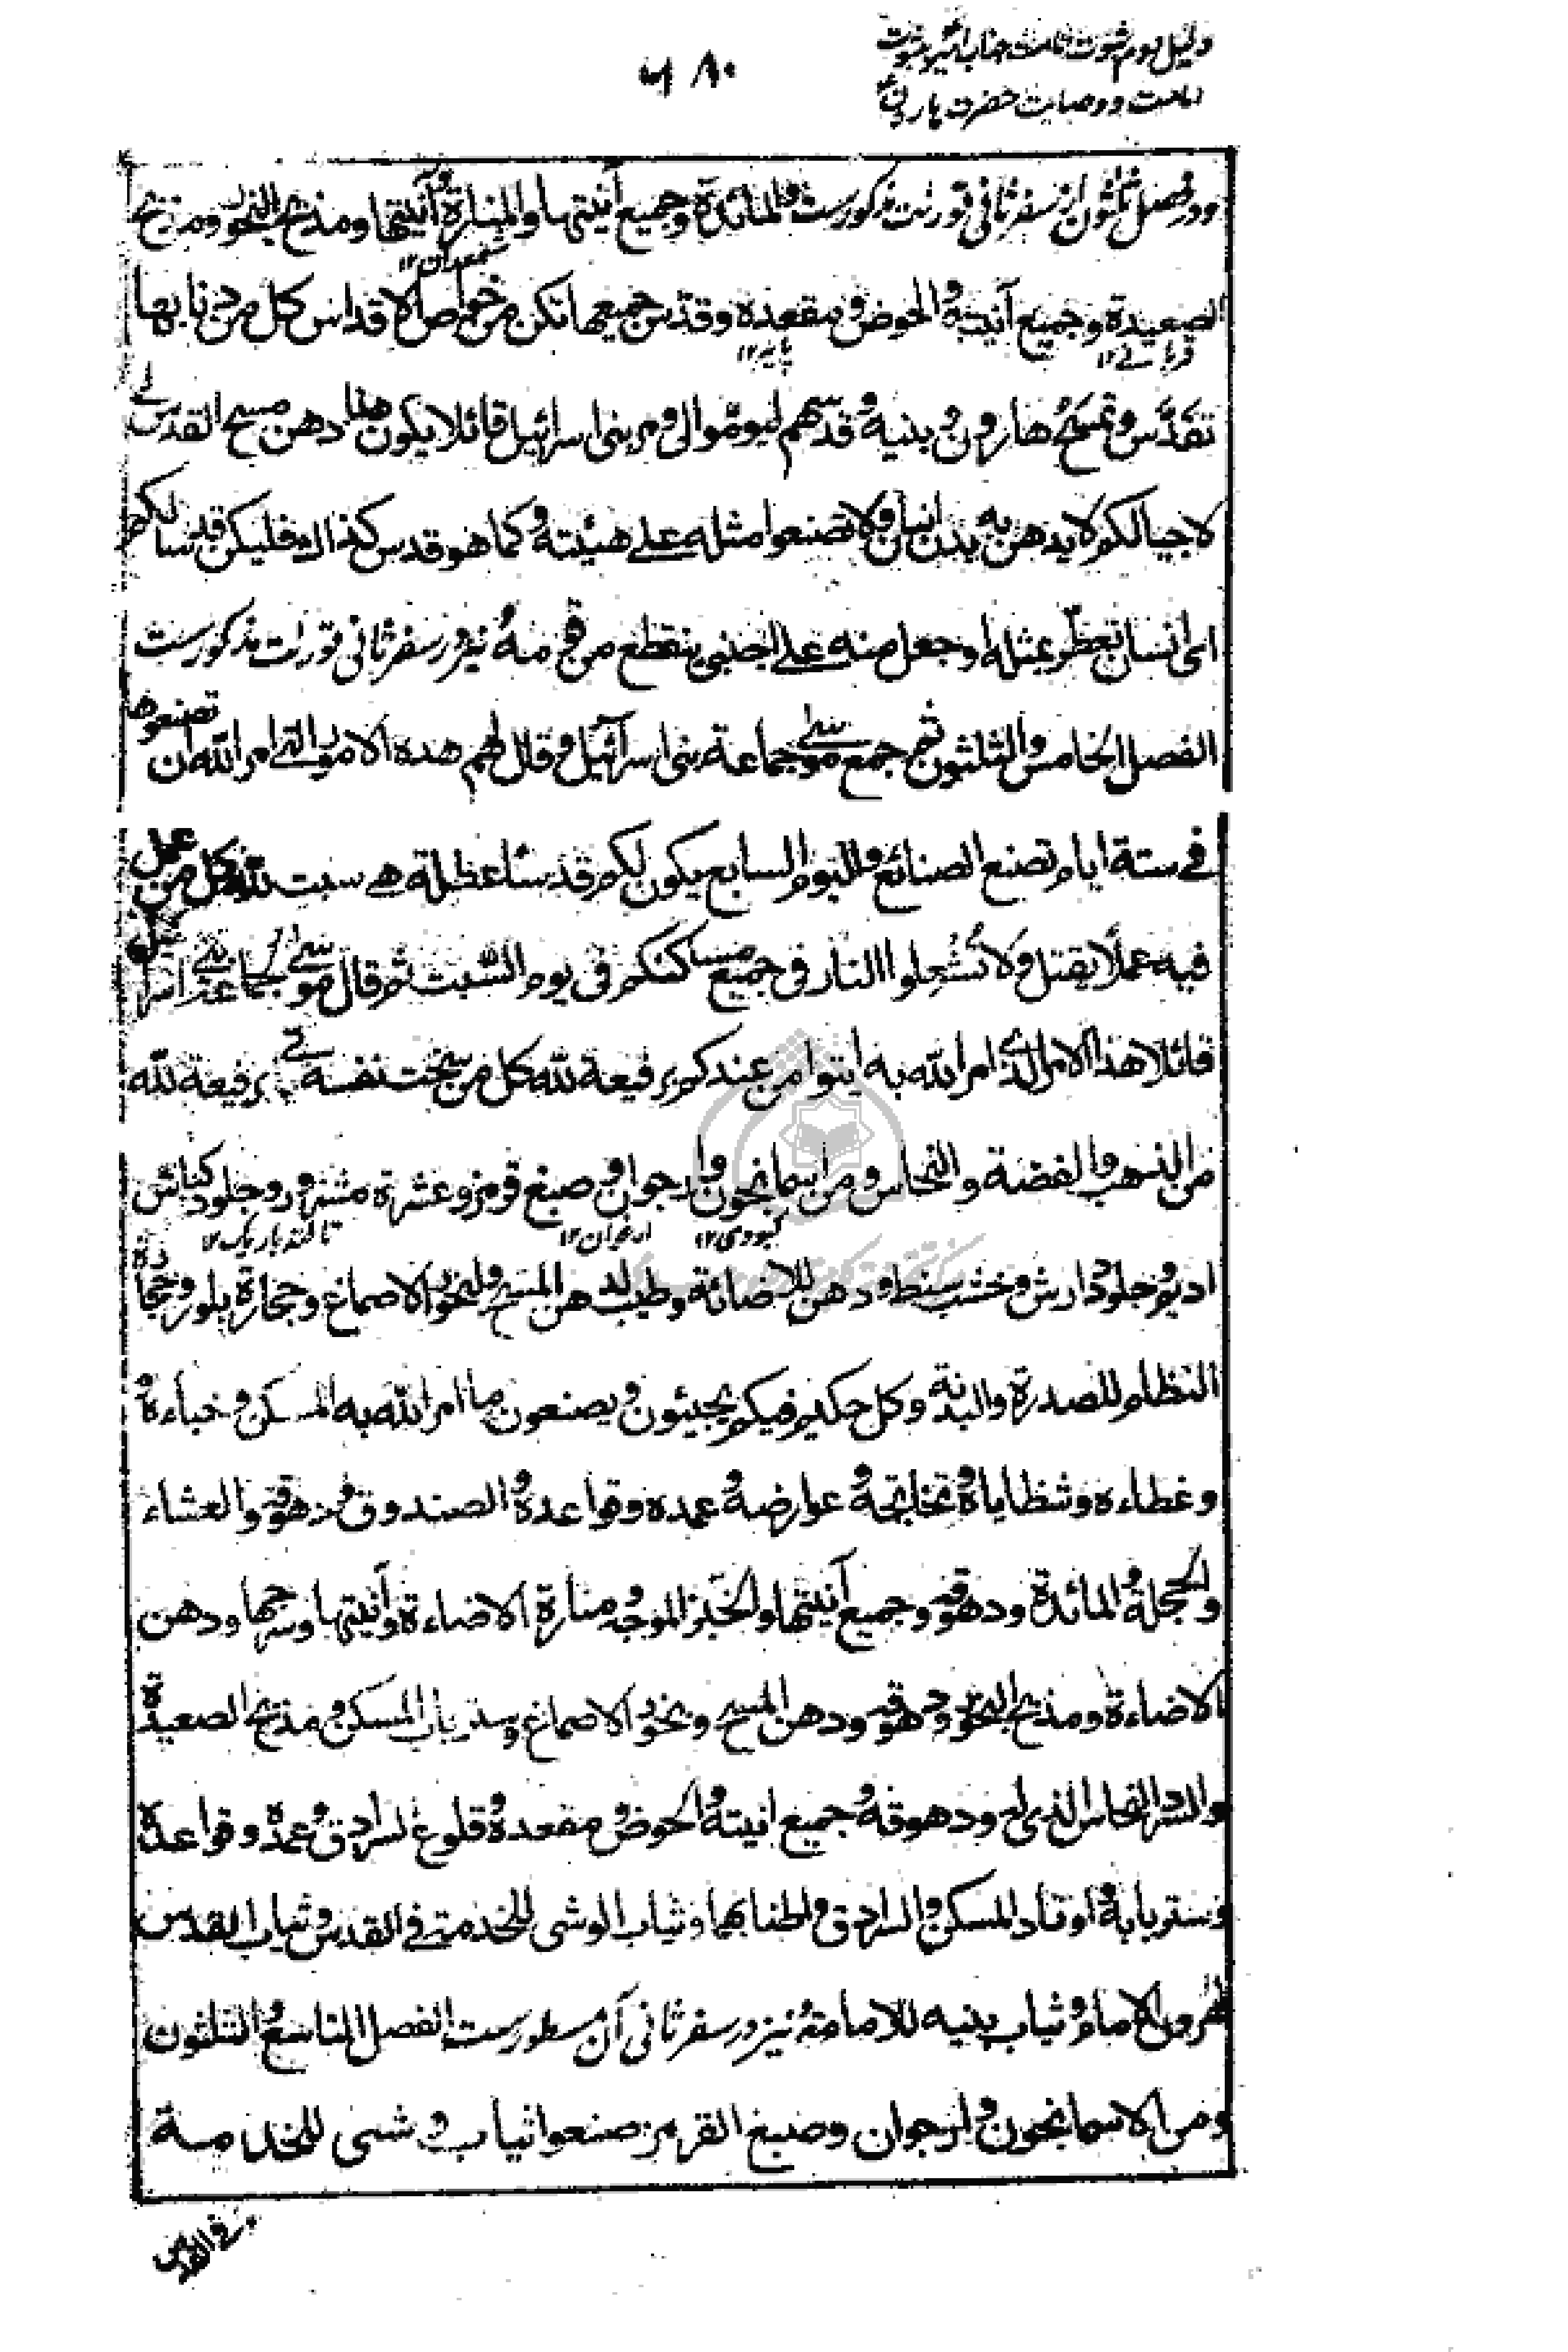 دلیل دوم ثبوت امامت جناب امیر بثبوت
۶۸۰
امامت ووصایت حضرت هارون
ودر فصل ثلثون از سفر ثانی تورات مذکورست والمائدة وجمیع آنیتها والمنارة وآنیتها ومذبح البخور ومذبح
شمعدان ۱۲
الصعیدة وجمیع آنیته والحوض ومقعده وقدّس جمیعها تکن من خواص الاقداس کل من دنا بها
قربانی ۱۲
پایه ۱۲
تقدّس وتمسح هارون وبنیه وقدّسهم لیؤمّوا لی ومر بنی اسرائیل قائلا یکون هذا دهن مسیح القدس لی
لاجیالکم لا یدهن به بدن انسان ولا تصنعوا مثله علی هیئته وکما هو قدس کذالک فلیکن قدسا لکم
ای انسان تعطّر بمثله او جعل منه علی اجنبی ینقطع من قومه ونیز در سفر ثانی تورات مذکورست
الفصل الخامس والثلثون ثم جمع موسی جماعة بنی اسرآئیل وقال لهم هذه الامور التی امر الله ان تصنعوها
فی ستة ایام تصنع الصنائع والیوم السابع یکون لکم قدسا عطلة هی سبت لله کل من عمل
فیه عملا یقتل ولا تُشعِلوا النار فی جمیع مساکنکم فی یوم السّبت ثم قال موسی لجماعة بنی اسرائیل
قائلا هذا الامر الذی امر الله به ایتوا من عندکم رفیعة لله کل من سخت نفسه برفیعة لله
من الذهب والفضة والنحاس ومن اسمانجون وارجوان وصبغ قرمز وعشرة مشزور وجلود کباش
کبودی ۱۲
ارغوان ۱۲
تافته باریک ۱۲
ادیم وجلود دارش وخشب سنط ودهن للاضائة وطیب لدهن المسح ولبخور الاصماغ وحجارة بلور وحجارة
النظام للصدرة والبدنة وکل حکیم فیکم یجیئون ویصنعون ما امر الله به المسکن وخباءه
وغطاءه وشظایاه وتخاتجه وعوارضه وعمده وقواعده والصندوق ودهوقه والغشاء
والحجلة والمائدة ودهوقه وجمیع آنیتها والخبز الموجه ومنارة الاضاءة وآنیتها وسرجها ودهن
الاضاءة ومذبح البخور ودهوقه ودهن المسح وبخور الاصماغ وستر باب المسکن ومذبح الصعیدة
والسرد النحاس الذی له ودهوقه وجمیع انیته والحوض ومقعده وقلوع السرادق وعمده وقواعده
وستر بابه واوتاد المسکن والسرادق واطنابهما وثیاب الوشی للخدمة فی القدس وثیاب القدس
لهرون الامام وثیاب بنیه للامامة ونیز در سفر ثانی آن مسطورست الفصل التاسع والثلثون
ومن الاسمانجون والارجوان وصبغ القرمز صنعوا ثیاب وشی للخدمة
فی القدس